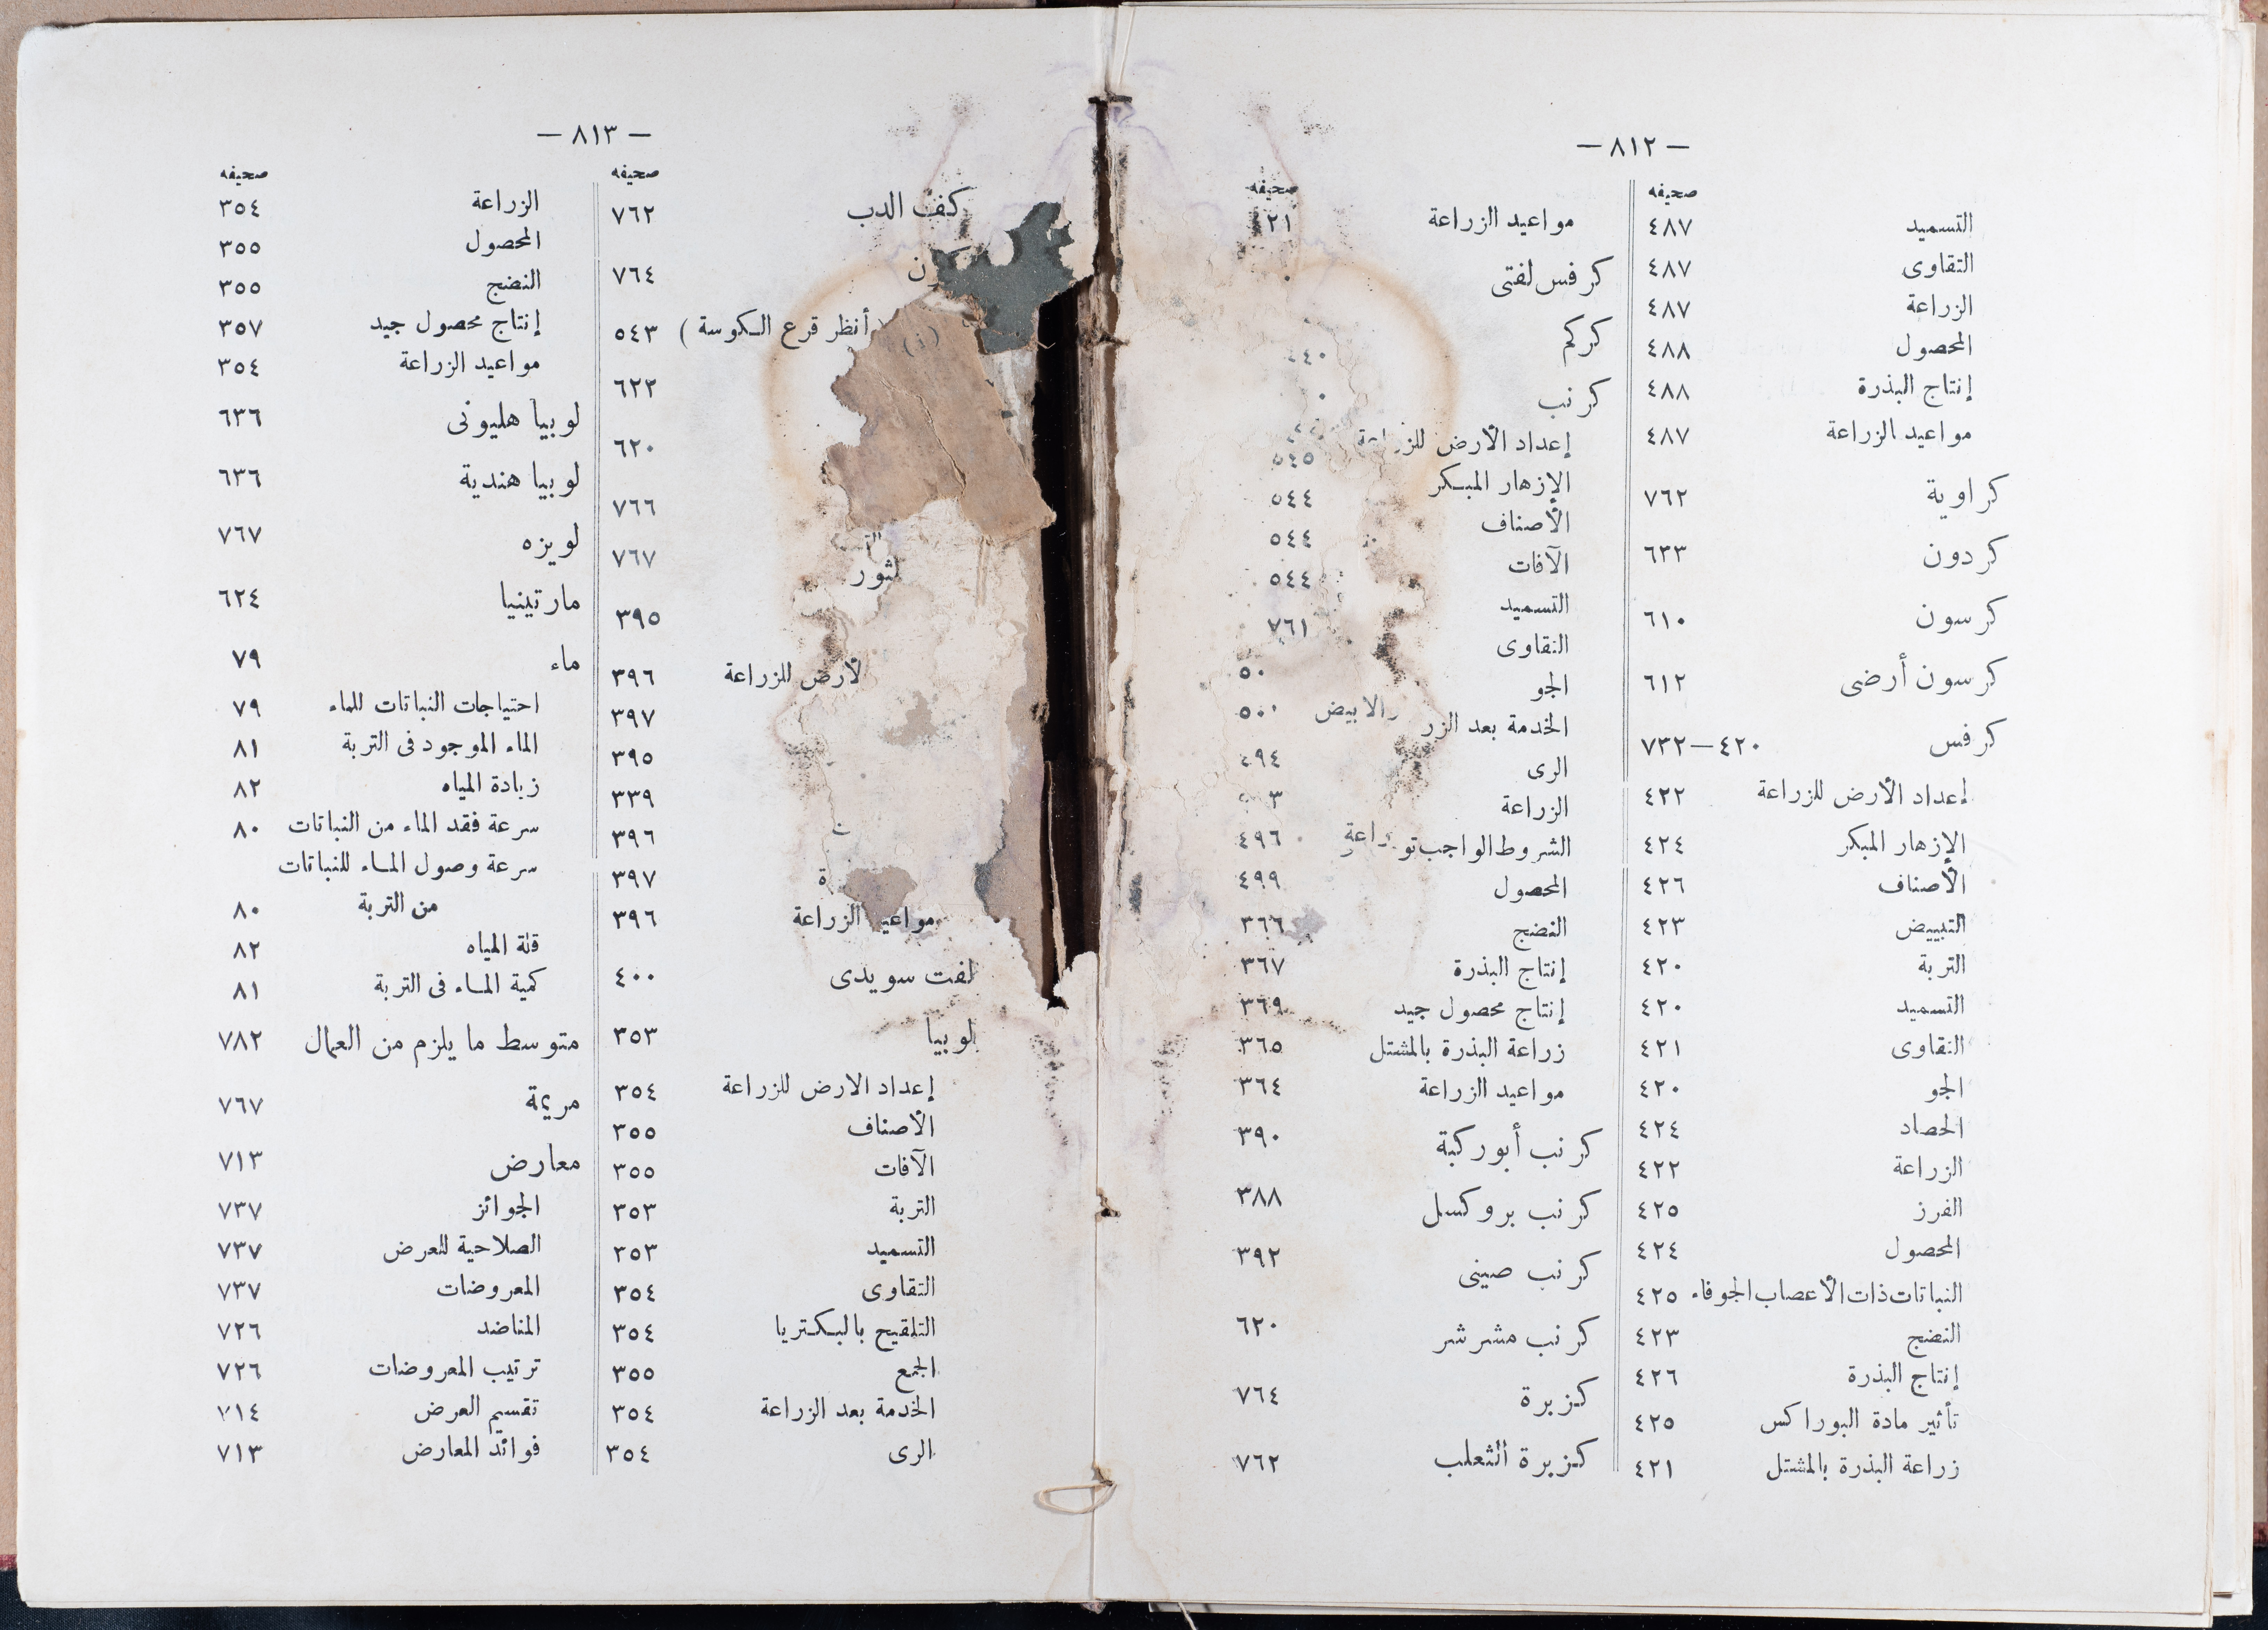 — ٨١٢ —
صحيفه
التسميد ٤٨٧
التقاوى ٤٨٧
الزراعة ٤٨٧
المحصول ٤٨٨
إنتاج البذرة ٤٨٨
مواعيد الزراعة ٤٨٧
كراوية ٧٦٢
كردون ٦٣٣
كرسون ٦١٠
كرسون أرضى ٦١٢
كرفس ٤٢٠—٧٣٢
إعداد الأرض للزراعة ٤٢٢
الإزهار المبكر ٤٢٤
الأصناف ٤٢٦
التبييض ٤٢٣
التربة ٤٢٠
التسميد ٤٢٠
التقاوى ٤٢١
الجو ٤٢٠
الحصاد ٤٢٤
الزراعة ٤٢٢
الفرز ٤٢٥
المحصول ٤٢٤
النباتات ذات الأعصاب الجوفاء ٤٢٥
النضج ٤٢٣
إنتاج البذرة ٤٢٦
تأثير مادة البوراكس ٤٢٥
زراعة البذرة بالمشتل ٤٢١
صحيفه
مواعيد الزراعة ٤٢١
كرفس لفتى
كركم
كرنب
إعداد الأرض للزراعة
الإزهار المبكر ٥٤٥
الأصناف ٥٤٤
الآفات ٥٤٤
التسميد ٥٤٤
التقاوى ٧٦١
الجو
الخدمة بعد الزر
والابيض
الرى ٤٩٤
الزراعة
الشروط الواجب تو ٤٩٦
المحصول ٤٩٩
النضج ٣٦٦
إنتاج البذرة ٣٦٧
إنتاج محصول جيد ٣٦٩
زراعة البذرة بالمشتل ٣٦٥
مواعيد الزراعة ٣٦٤
كرنب أبو ركبة ٣٩٠
كرنب بروكسل ٣٨٨
كرنب صينى ٣٩٢
كرنب مشرشر ٦٢٠
كزبرة ٧٦٤
كزبرة الثعلب ٧٦٢
— ٨١٣ —
صحيفه
كف الدب ٧٦٢
ون ٧٦٤
(أنظر قرع الكوسة) ٥٤٣
٦٢٢
٦٢٠
٧٦٦
لثور ٧٦٧
٣٩٥
لأرض للزراعة ٣٩٦
٣٩٧
٣٩٥
٣٣٩
٣٩٦
ة ٣٩٧
مواعيد الزراعة ٣٩٦
لفت سويدى ٤٠٠
لوبيا ٣٥٣
إعداد الارض للزراعة ٣٥٤
الأصناف ٣٥٥
الآفات ٣٥٥
التربة ٣٥٣
التسميد ٣٥٣
التقاوى ٣٥٤
التلقيح بالبكتريا ٣٥٤
الجمع ٣٥٥
الخدمة بعد الزراعة ٣٥٤
الرى ٣٥٤
صحيفه
الزراعة ٣٥٤
المحصول ٣٥٥
النضج ٣٥٥
إنتاج محصول جيد ٣٥٧
مواعيد الزراعة ٣٥٤
لوبيا هليونى ٦٣٦
لوبيا هندية ٦٣٦
لويزه ٧٦٧
مارتينيا ٦٢٤
ماء ٧٩
احتياجات النباتات للماء ٧٩
الماء الموجود فى التربة ٨١
زيادة المياه ٨٢
سرعة فقد الماء من النباتات ٨٠
سرعة وصول المــاء للنباتات
من التربة ٨٠
قلة المياه ٨٢
كمية المــاء فى التربة ٨١
متوسط ما يلزم من العمال ٧٨٢
مريمة ٧٦٧
معارض ٧١٣
الجوائز ٧٣٧
الصلاحية للعرض ٧٣٧
المعروضات ٧٣٧
المناضد ٧٢٦
ترتيب المعروضات ٧٢٦
تقسيم العرض ٧١٤
فوائد المعارض ٧١٣